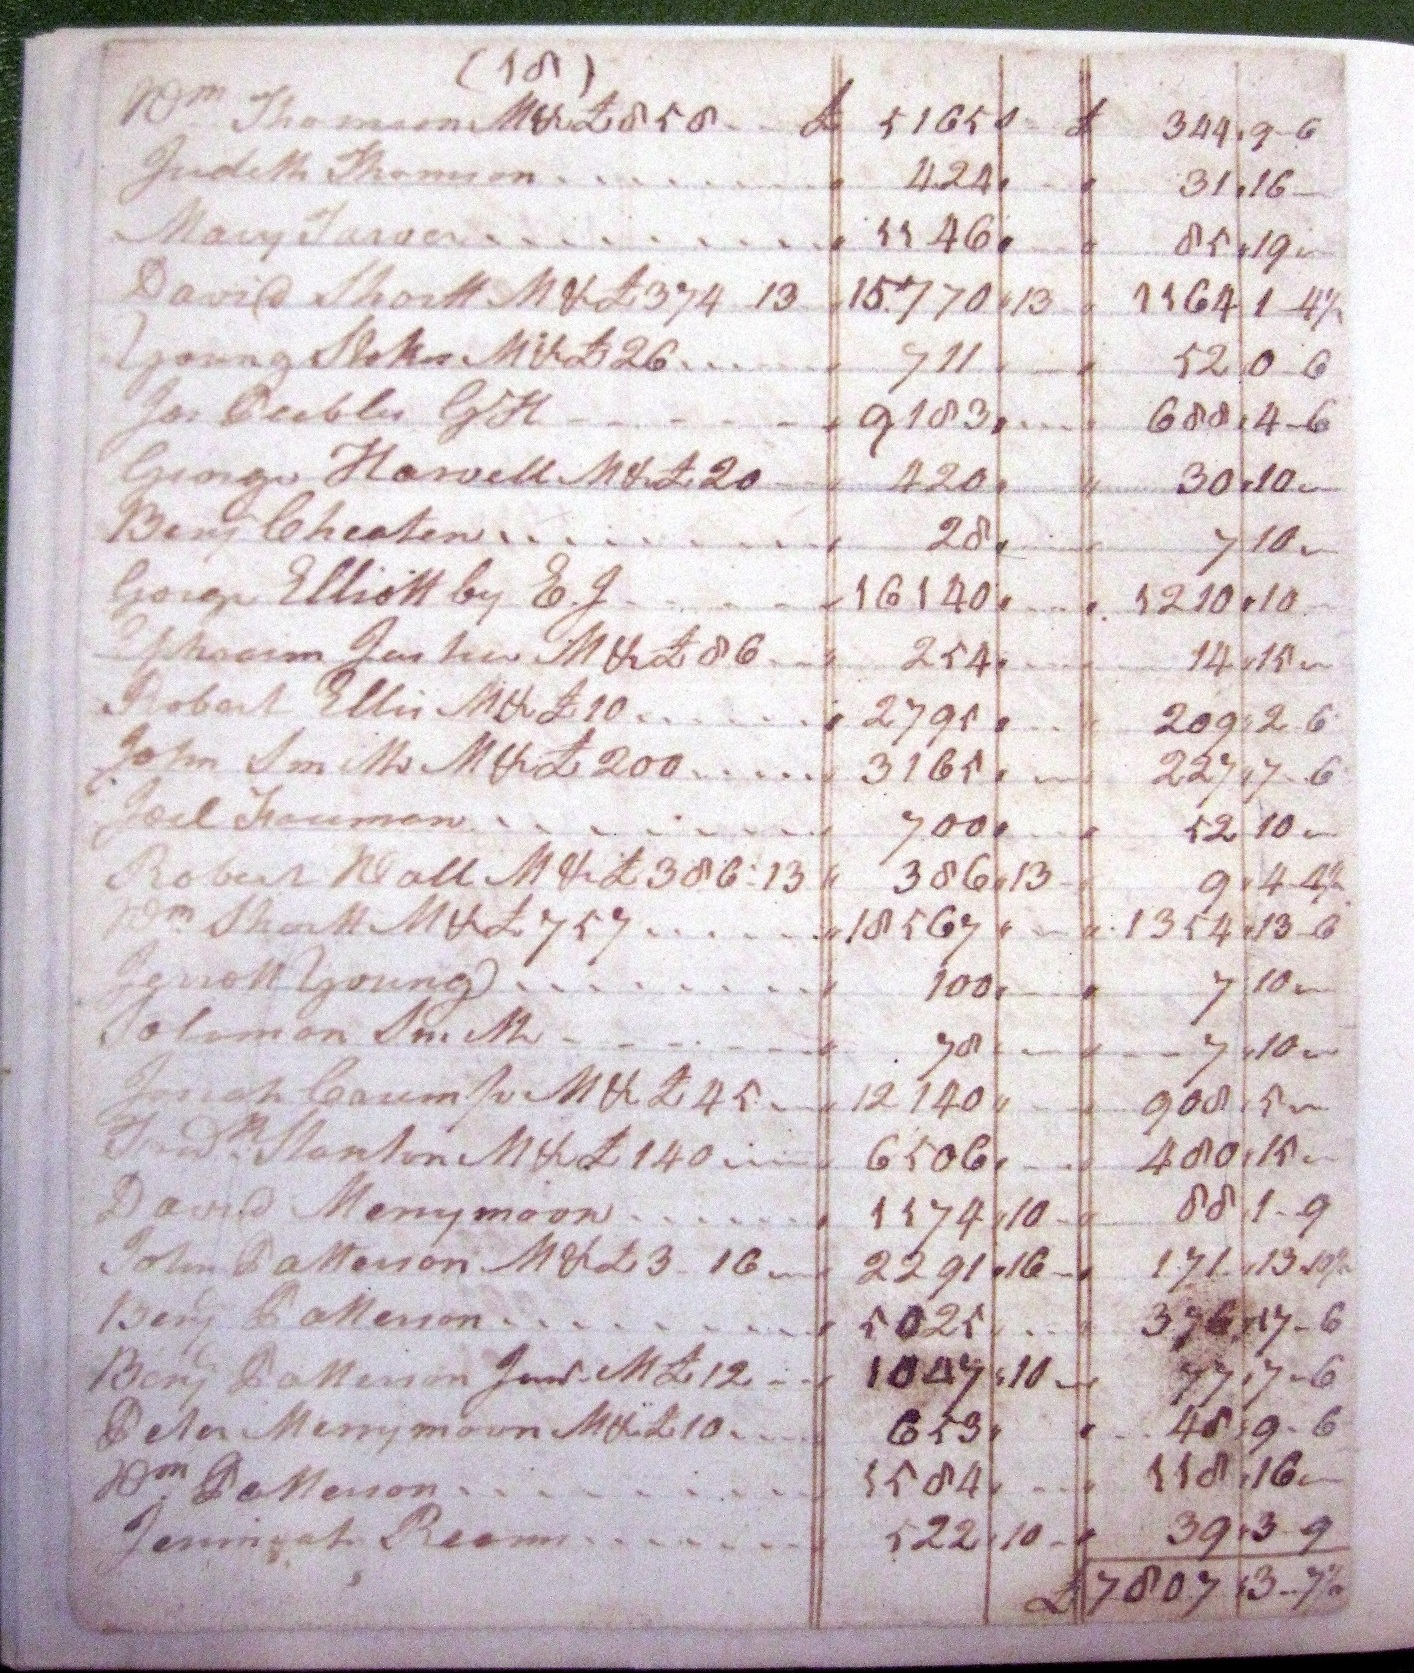 (18)
Wm Thomson M&c £858 - - £ 5165 " - £ 344 " 9 - 6
Judeth Thomson . . . . . . . 424 " - - " 31 " 16 -
Mary Turner . . . . . . . . . " 1146 " " 85 " 19 -
David Shortt M&c £374 13 " 15770 " 13 " 1164 1 - 4½
Young Stokes M&c £26 . . . . 711 - - 52 0 - 6
Jos Peebles G H - - - - - - " 9183 " - - 688 " 4 - 6
George Harwell M&c £20 420 " " 30 " 10 -
Benj Cheaten . . . . . . . . . " 28 " - - " 7 10 -
George Elliott by E. J - - - - - " 16140 " - - " 1210 " 10
Ephraim M&c £86 - - " 254 " - - 14 " 15 -
Robert Ellis M&c £10 . . . . . . " 2795 " - - " 209 " 2 - 6
John Smith M&c £200 . . . . . 3165 " - 227 " 7 - 6
Joel Freeman . . . . . . . . 700 " - - " 52 10 -
Robert Wall M&c £386 : 13 " 386 " 13 - " 9 " 4 - 4½
Wm Shortt M&c £757 . . . . . . " 18567 " - - " 1354 " 13 - 6
Jerrott Young . . . . . . . . " 100 " - - " 7 " 10 -
Solomon Smith - - - - - - " 78 - - " - - 7 " 10 -
M&c £45 - " 12140 " " 908 " 5 -
Fredk Stanton M&c £140 - - - " 6506 " - - 480 " 15 -
David Merrymoon . . . . . . . " 1174 " 10 - " 88 " 1 - 9
John Patterson M&c £3 - 16 - " 2291 " 16 - " 171 " 13 - 10½
Benj Patterson . . . . . . . . . " 5025 - - - 376 " 17 - 6
Benj Patterson Junr. M £12 - - " 1047 " 10 - 77 " 7 - 6
Peter Merrymoon M&c £10 . . . . 653 " " - - 48 " 9 - 6
Wm Patterson . . . . . . . . . 1584 - - - 118 " 16 -
Reams . . . . . . . . 522 " 10 - " 39 " 3 - 9
£ 7807 " 3 - 7½